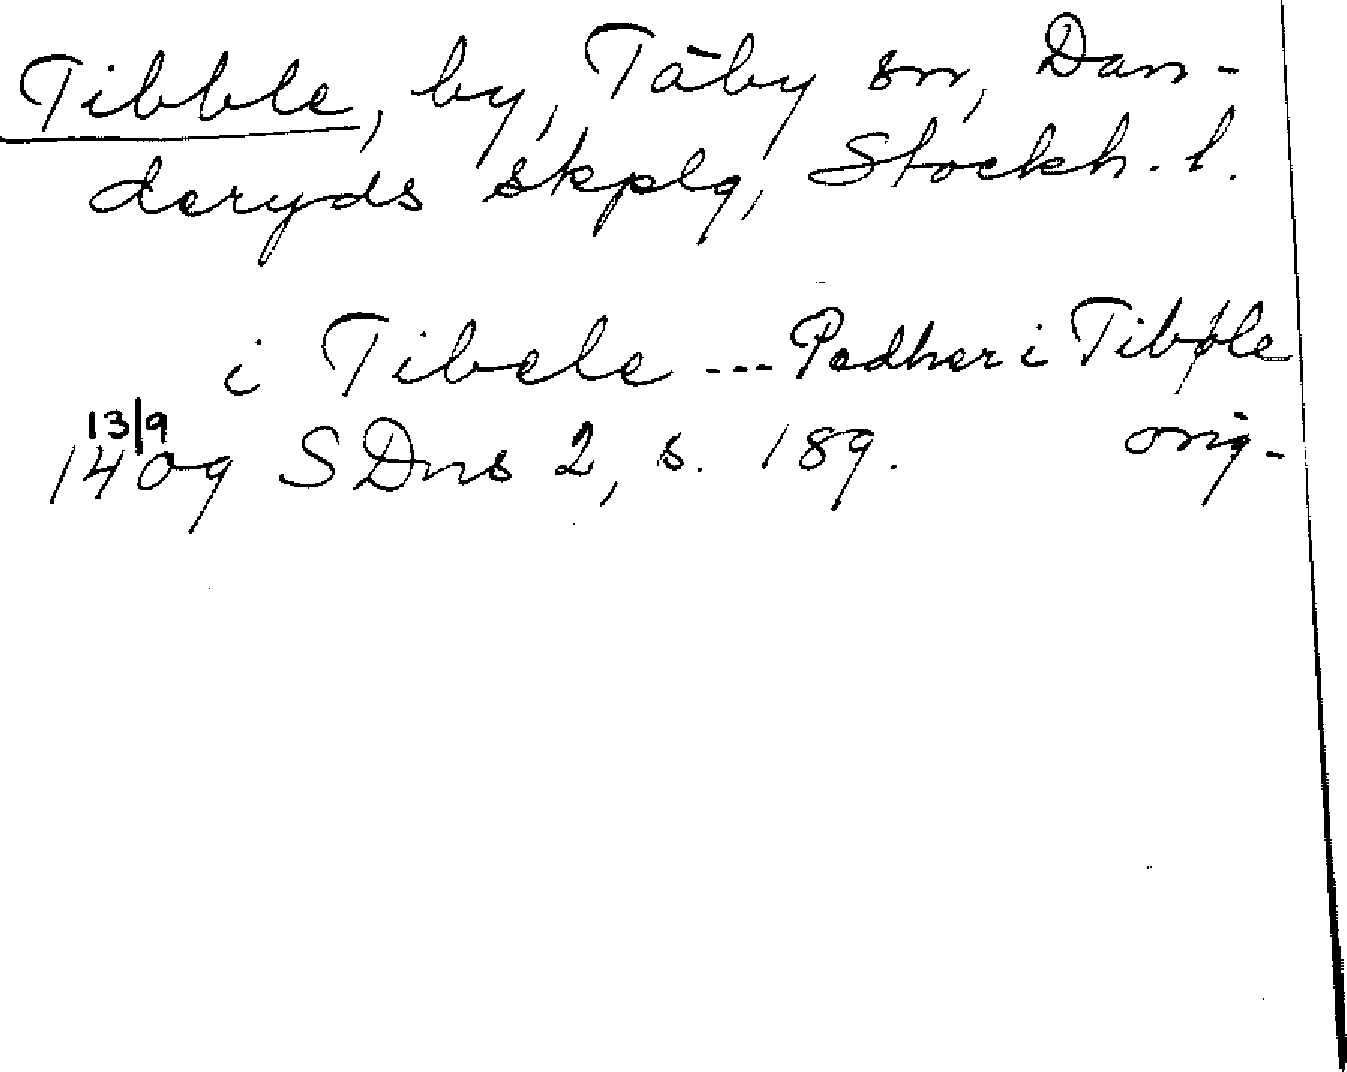 Tibble, by, Täby sn, Dan-
deryds skplg, Stockh. l.
i Tibele --- Pedher i Tibøle
13/9
1409 SDns 2, s. 189. orig.